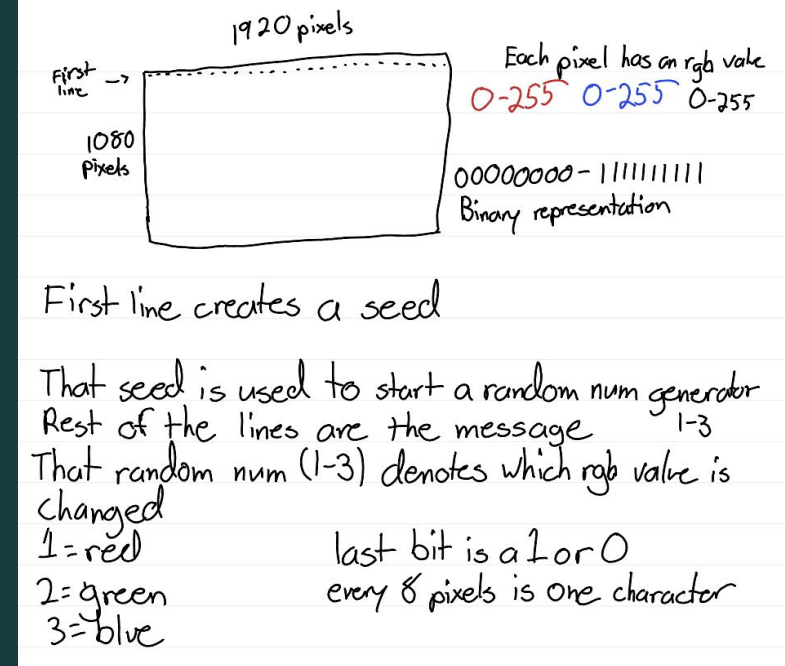 1920 pixels
First line →
1080 pixels
Each pixel has an rgb value
0-255 0-255 0-255
00000000-1111111111
Binary representation
First line creates a seed
That seed is used to start a random num generator
1-3
Rest of the lines are the message
That random num (1-3) denotes which rgb value is
changed
1=red
2=green
3=blue
last bit is a 1 or 0
every 8 pixels is one character